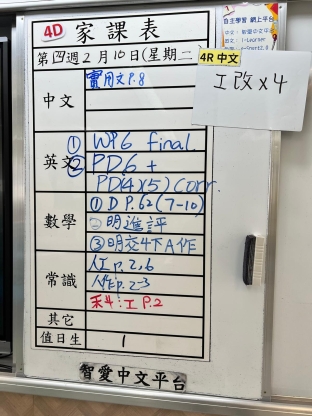 4D 家課表
第四週2月10日(星期二
中文
實用文P.8
英文
① WP6 final.
② PD6 +
PD(4)(5) corr.
數學
① D P.62 (7-10)
②明進評
③明交4下A作
常識
人工 P.2,6
人作P.2-3
禾斗:工 P.2
其它
值日生
1
智愛中文平台
自主學習 網上平台
中文:智愛中文平台
4R 中文
工改 x 4